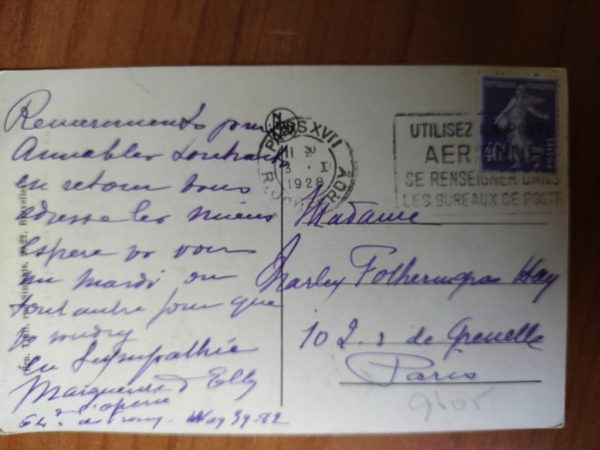 Remerciements pour
aimables souhaits
en retour vous
adresse les miens
Espère vs voir
un mardi ou
tout autre jour que
vs voudrez
en Sympathie
Marguerite d'Elly
de l'opéra
Wag 39-62
PARIS XVII
11 30
3 · I
1928
UTILISEZ LA POSTE
AERIENNE
SE RENSEIGNER DANS
LES BUREAUX DE POSTE
REPUBLIQUE FRANÇAISE
40
POSTES
Madame
Charley Fotheringas Hay
102 r de Grenelle
Paris